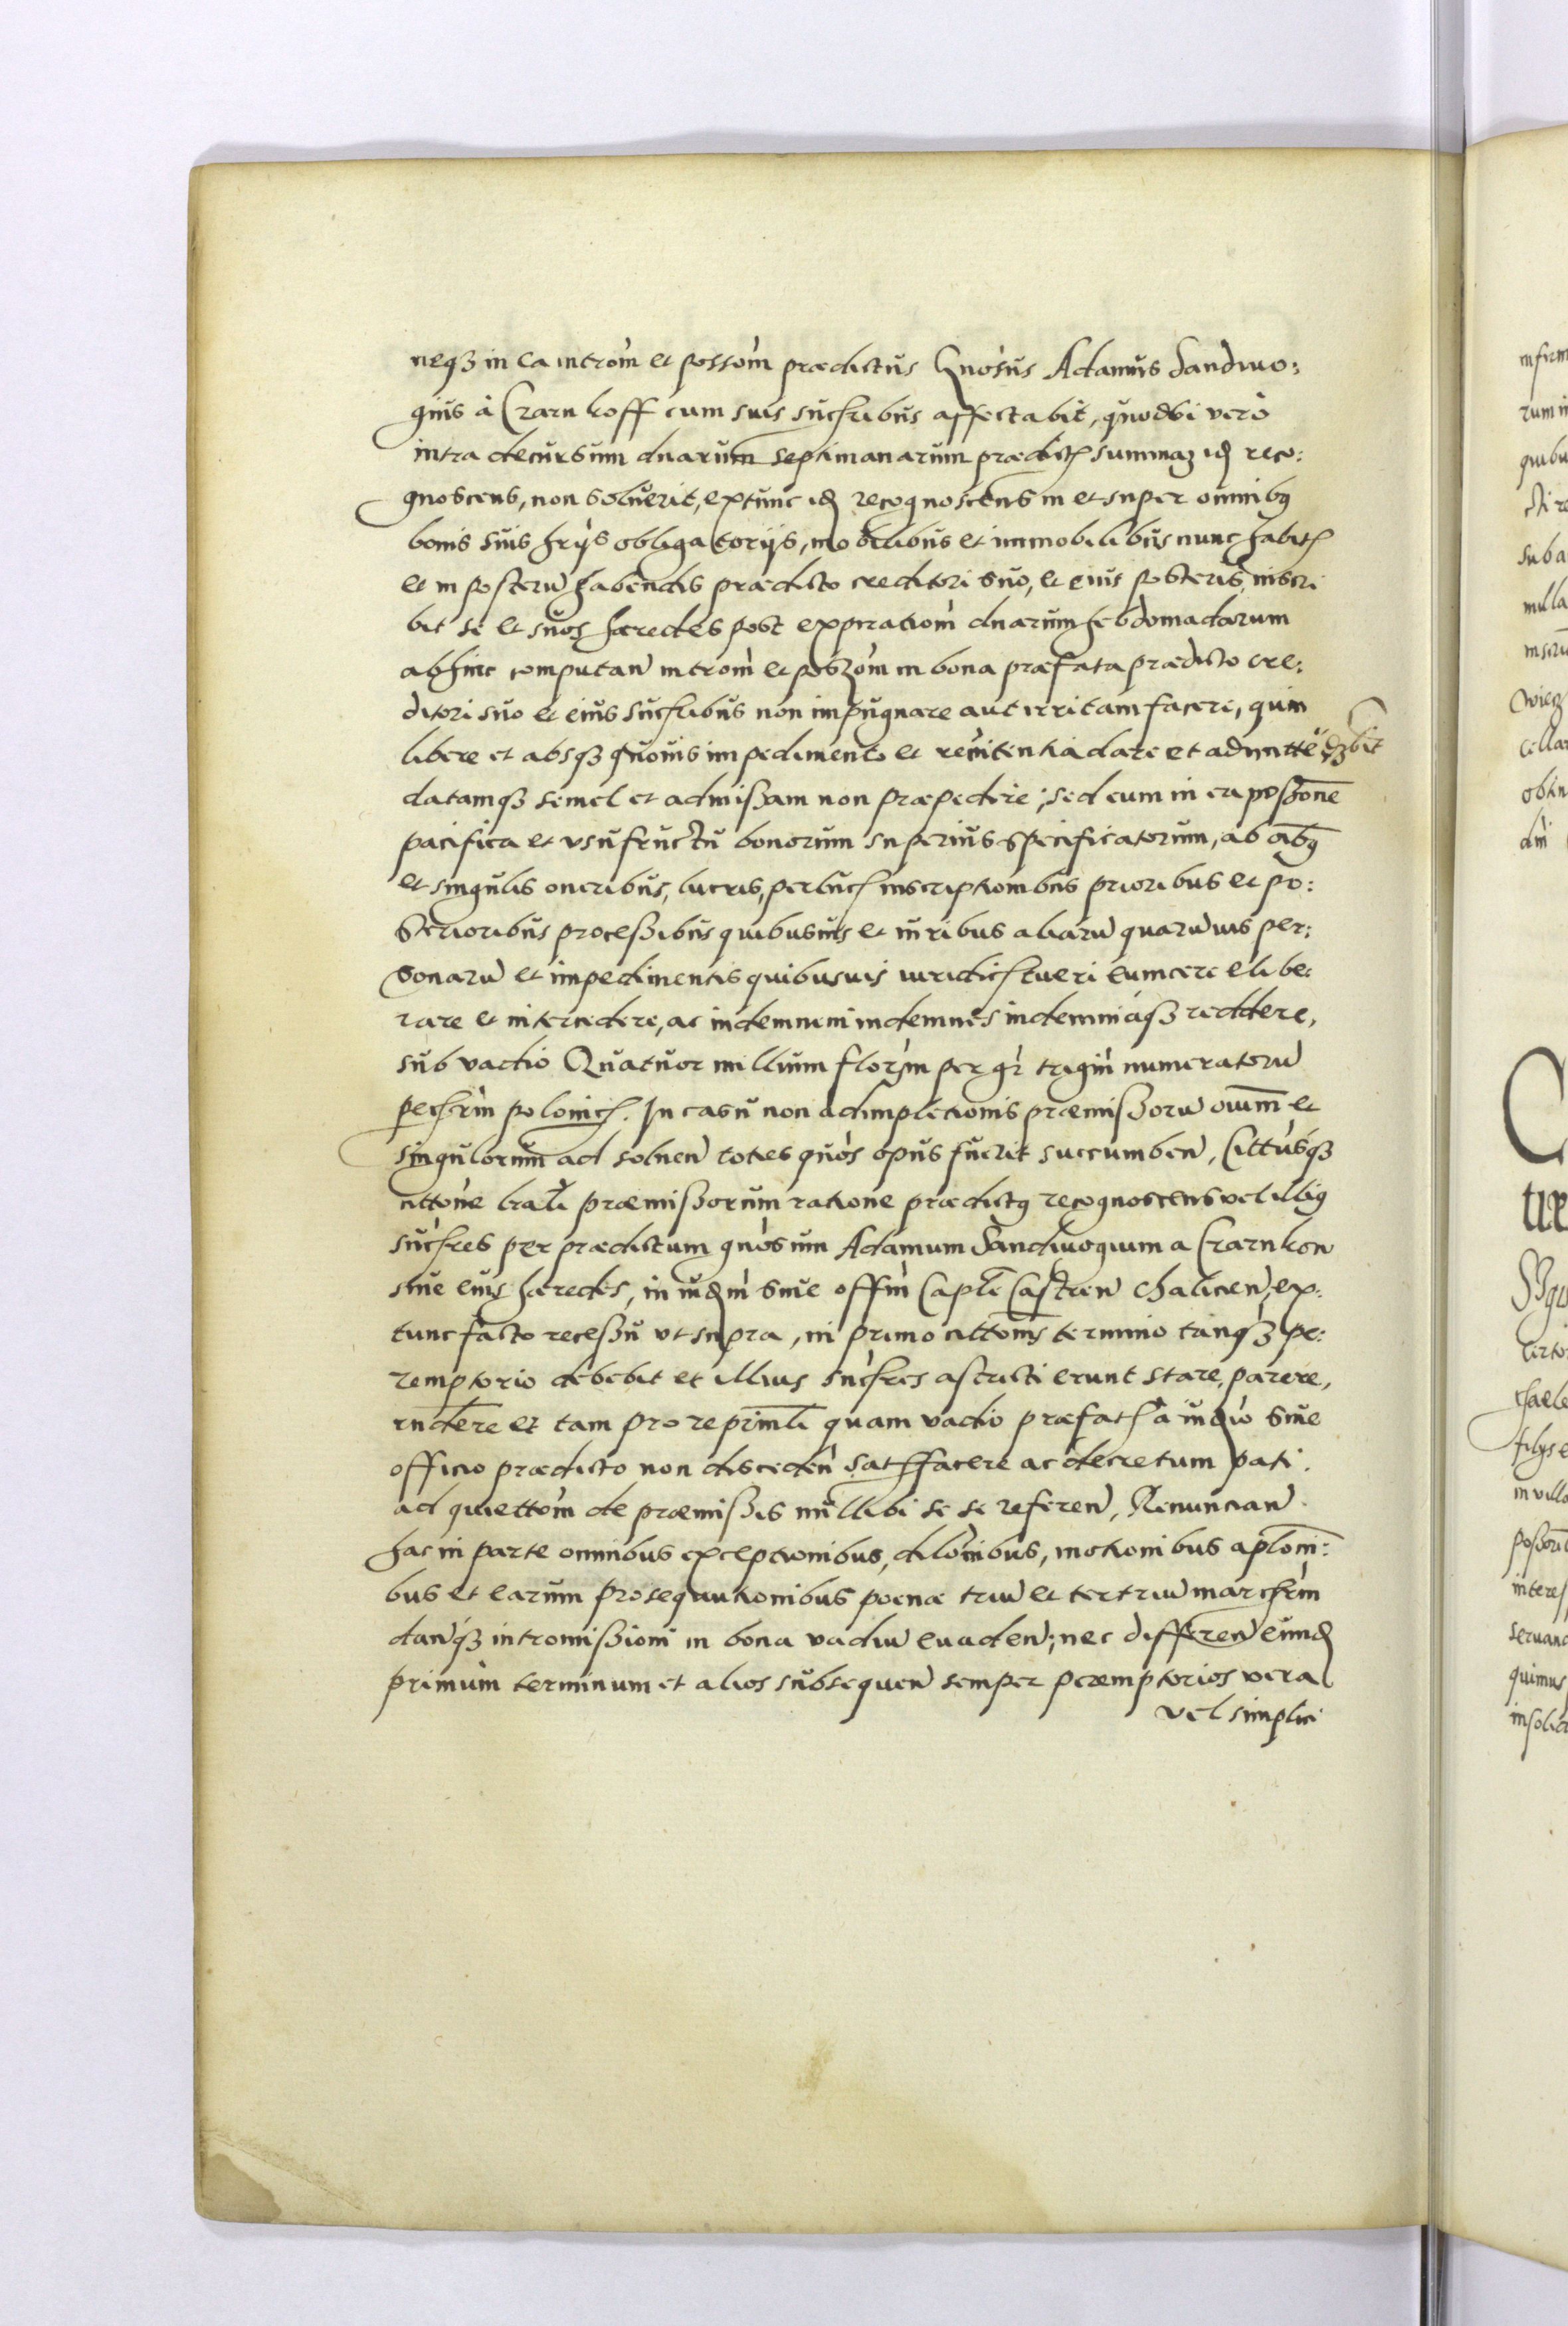 neq₃ in ea introm̀ et possom̀ prædictus Gnòsus Adamus Sandiuo:
gius à Czarnkoff cum suis sucf̃ribus affectabit, quod vbi verò
intra decursum duarum septimanarum prædict̃ summaȝ id̃ reco:
gnoscens, non soluerit, extunc id̃ recognoscens in et super omnibꝰ
bonis suis hr̃ijs obligatorijs, mobilibus et immobilibus nunc habit̃
et in posterũ habendis prædicto creditori suo, et eius posteris, inscri
bit se et suos hæredes post expirationm̀ duarum hebdomadarum
abhinc computan̄ introm̀ et posȝom̀ in bona præfata prædicto cre:
ditori suo et eius sucf̃ribus non impugnare aut irritam facere, quin
libere et absq₃ quouis impedimento et renitentia dare et admitte
datamq₃ semel et admißam non præpedire; sed eum in ea poßone
pacifica et vsufructu bonorum superius specificatorum, ab oibꝰ
et singulis oneribus, lucris, perlucr̃ inscriptionibus prioribus et po:
sterioribus proceßibus quibusuis et iuribus aliarũ quarũuis per:
sonarũ et impedimentis quibusuis iuridic̃ tueri euincere elibe:
rare et intercedere, ac indemnem indemnes indemniaq₃ reddere,
sub vadio Quatuor millium florȝm per gr̀ trigin̄ numeratorũ
pechr̃m polonic̃. In casu non adimpletionis præmißorũ oium̄ et
singulorum ad soluen̄ toties quòs opus fuerit succumben̄, Cittusq₃
cittone præmißorum ratione prædictꝰ recognoscens vel illiꝰ
sucf̃res per prædictum gnòsum Adamum Sandiuogium a Czarnkon
siue eius hæredes, in iud̃m̀ siue offm̀ Caple Castren̄ Chalicien̄, ex:
tunc facto receßu vt supra, in primo cittonis termino tanq₃ pe:
remptorio debebit et illius sucf̃res astricti erunt stare, parere,
rndere et tam pro reprinli quam vadio præfat̃ a iud̃io siue
officio prædicto non disceden̄ satisfacere ac decretum pati.
ad quiettom̀ de præmißis nullibi se se referen̄, Renuncian̄
hac in parte omnibus exceptionibus, dilonibus, motionibus aplom̄:
bus et earum prosequutionibus poenæ triũ et ter triũ marchr̃m
danq₃ intromißioni in bona vadiũ euaden̄; nec differen̄ eund̃
primum terminum et alios subsequen̄ semper peremptorios vera
vel simplici